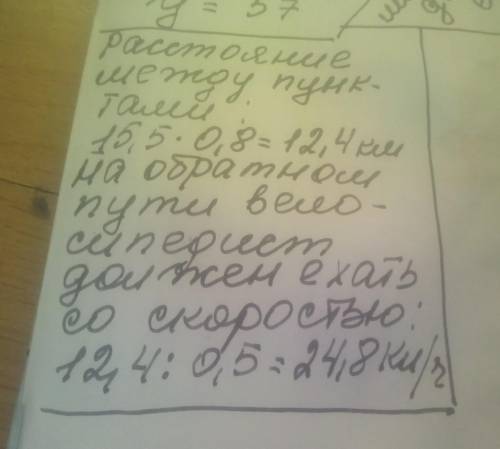 y = 57
расстояние
между пунк-
тами:
15,5 · 0,8 = 12,4 км
на обратном
пути вело-
сипедист
должен ехать
со скоростью:
12,4 : 0,5 = 24,8 км/ч